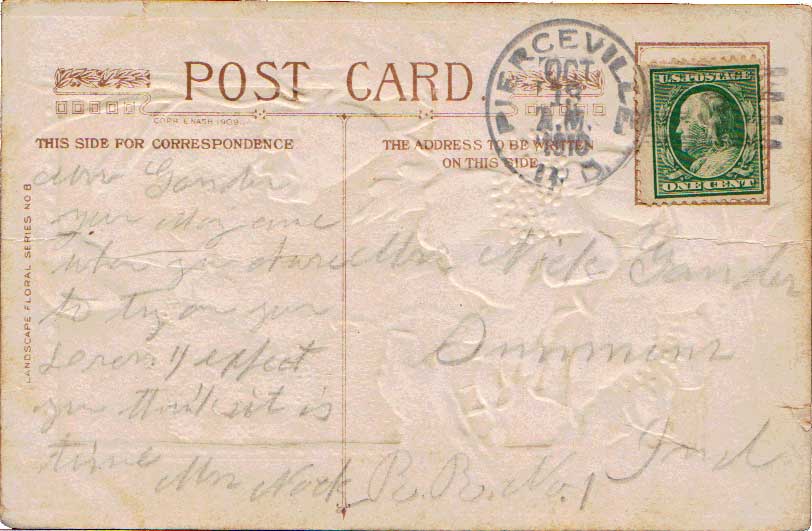 POST CARD
COPR. E. NASH 1909
THIS SIDE FOR CORRESPONDENCE
THE ADDRESS TO BE WRITTEN
ON THIS SIDE
LANDSCAPE FLORAL SERIES NO 8
PIERCEVILLE
OCT
A.M.
1910
IND
U.S. POSTAGE
ONE CENT
Mrs Gander
you may come
when you
to try on your
I expect
you think it is
time
Mrs Nick
Mrs Nick Gander
Ind
R. R. No. 1